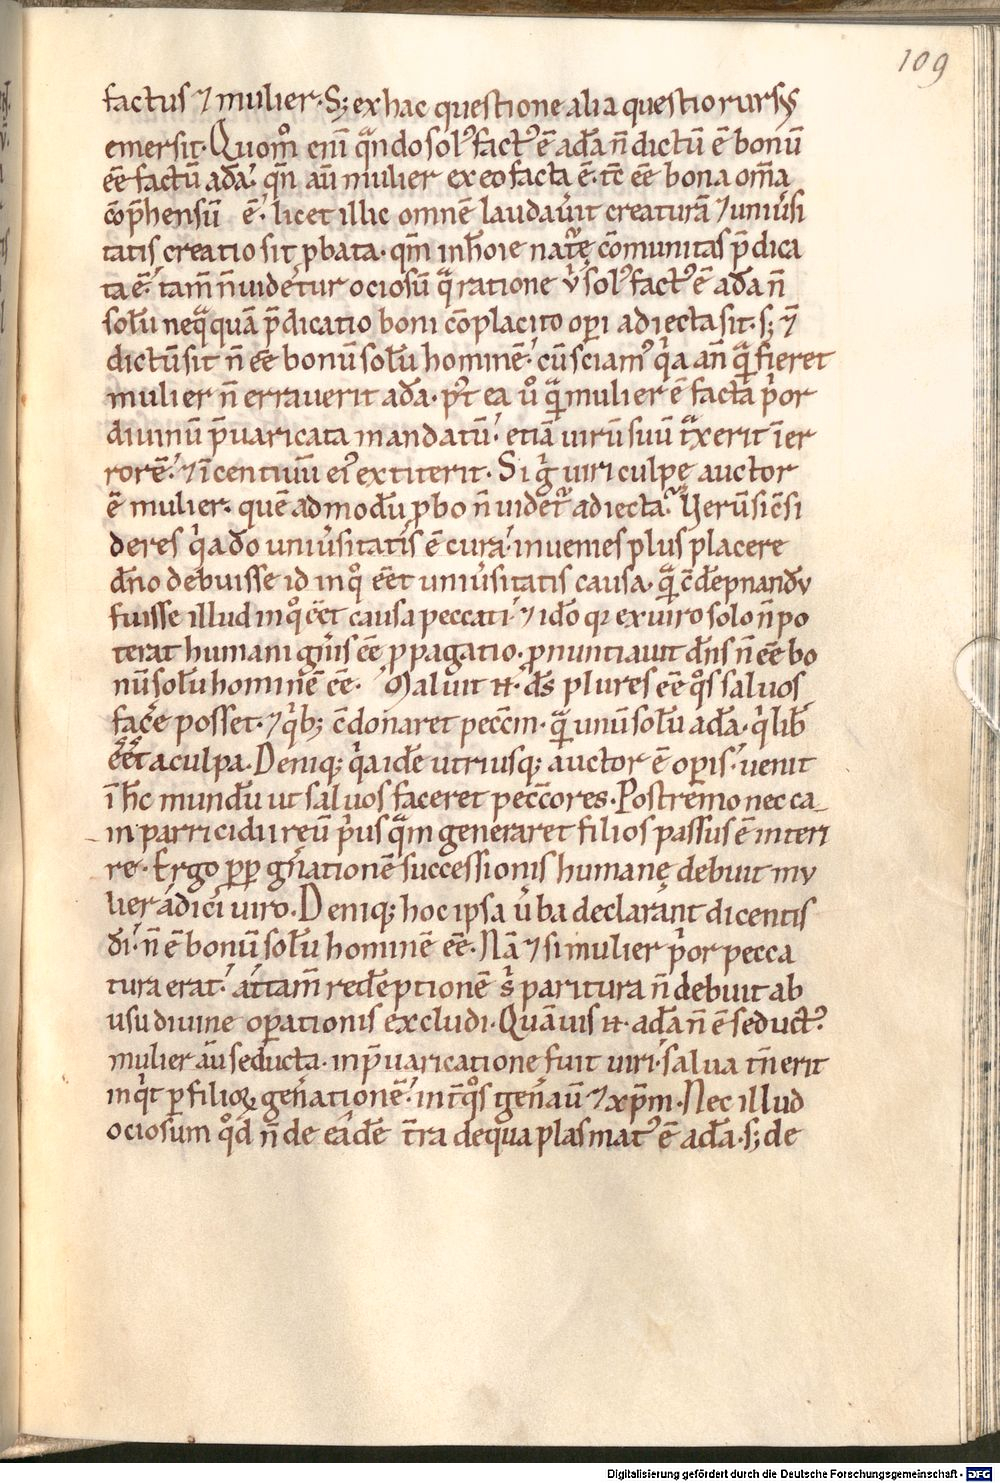 109
factus ⁊ mulier. S; ex hac questione alia questio rursꝰ
emersit. Quom̊ eni̅ qᷓndo solꝰ factꝰ e̅ ada̅ n̅ dictu̅ e̅ bonu̅
e̅e̅ factu̅ ada̅. qn̅ au̅ mulier ex eo facta e̅. tc̅ e̅e̅ bona om̅a
co̅p̅hensu̅ e̅. licet illic omne̅ laudaủit creatura̅ ⁊ uniủsi
tatis creatio sit ꝓbata. qm̅ in ho̅i̅e natᷓę co̅munitas p̅dica
ta e̅. tam̅ n̅ uidetur ociosu̅ qᷓ ratione ủ solꝰ factꝰ e̅ ada̅ n̅
solu̅ neqᷓquā p̅dicatio boni co̅placito oꝑi adiecta sit. s; ⁊
dictu̅ sit n̅ e̅e̅ bonu̅ solu̅ homine̅. cu̅ sciamꝰ qͥa an̅ qᷓ fieret
mulier n̅ errauerit ada̅. pꝰt ea ủo qᷓ mulier e̅ facta pͥor
diuinu̅ p̅uaricata mandatu̅. etia̅ uiru̅ suu̅ tᷓxerit i̅ er
rore̅. ⁊ i̅centiuu̅ eiꝰ extiterit. Si gͥ uiri culpę auctor
e̅ mulier. que̅admodu̅ ꝓ bo n̅ uidet᷑ adiecta. Veru̅ si c̅si
deres qͥa do̅ uniủsitatis e̅ cura. inuenies plus placere
dn̅o debuisse id in qͦ e̅e̅t uniủsitatis causa. qᷓ c̅de̅pnandu̅
fuisse illud in qͦ e̅e̅t causa peccati. ⁊ ido̅ qꝛ ex uiro solo n̅ po
terat humani gn̅is e̅e̅ ꝓpagatio. ꝓnuntiauit dn̅s n̅ e̅e̅ bo
nu̅ solu̅ homine̅ e̅e̅. Maluit n̅. ds̅ plures e̅e̅ qͦs saluos
face̅ posset. ⁊ qͥb; c̅donaret pecc̅m. qᷓ unu̅ solu̅ ada̅. qͥ lib̅
e̅e̅t a culpa. Deniq; qͥa ide̅ utriusq; auctor e̅ oꝑis. uenit
i̅ hc̅ mundu̅ ut saluos faceret pecc̅ores. Postremo nec ca
in parricidii reu̅ pͥus qᷓm generaret filios passus e̅ interi
re. Ergo ꝓꝑ gn̅atione̅ successionis humanę debuit mu
lier adici uiro. Deniq; hoc ipsa ủba declarant dicentis
di̅. n̅ e̅ bonu̅ solu̅ homine̅ e̅e̅. Na̅ ⁊ si mulier pͥor pecca
tura erat. attam̅ rede̅ptione̅ sͥ paritura n̅ debuit ab
usu diuine oꝑationis excludi. Qua̅uis n̅. ada̅ n̅ e̅ seductꝰ.
mulier au̅ seducta. in p̅uaricatione fuit uiri. salua tn̅ erit
inqͥt ꝑ filioꝝ gen̅atione̅. int̅ qͦs gen̅auit ⁊ xp̅m. Nec illud
ociosum qͦd n̅ de eade̅ t̅ra de qua plasmatꝰ e̅ ada̅. s; de
Digitalisierung gefördert durch die Deutsche Forschungsgemeinschaft - DFG